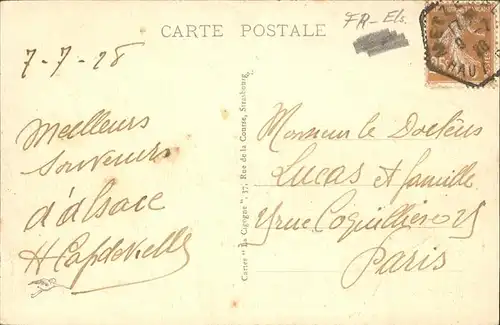 CARTE POSTALE
FR-Els.
7-7-28
Meilleurs
Souvenirs
d'alsace
H Capdevielle
Cartes "La Cigogne" 37, Rue de la Course, Strasbourg
Monsieur le Docteur
Lucas et famille
rue Coquillière
Paris